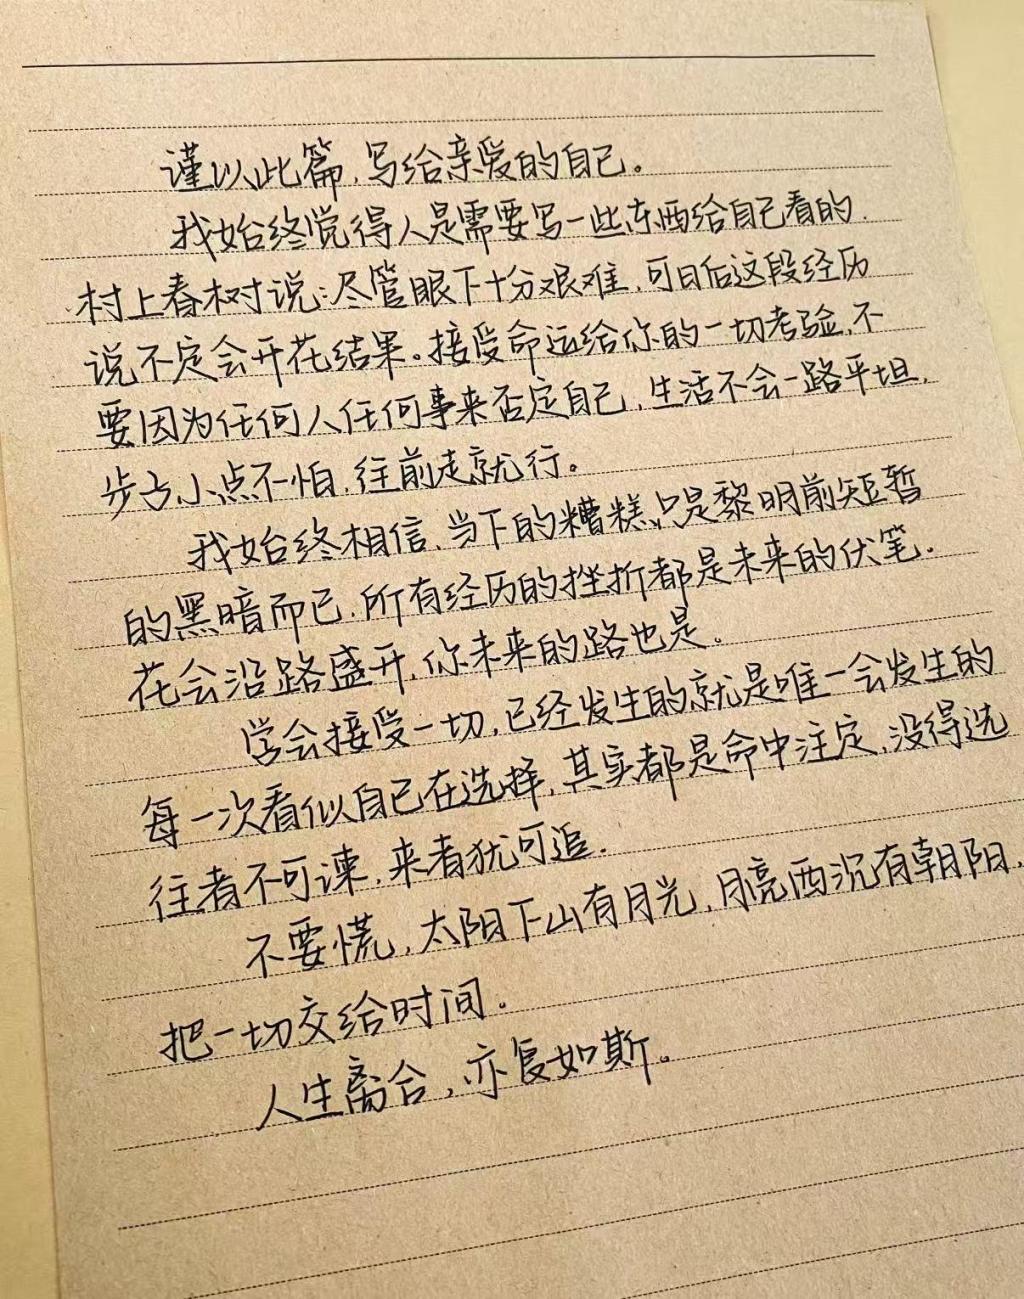 谨以此篇,写给亲爱的自己。
我始终觉得人是需要写一些东西给自己看的.
村上春树说:尽管眼下十分艰难,可日后这段经历
说不定会开花结果。接受命运给你的一切考验,不
要因为任何人任何事来否定自己,生活不会一路平坦,
步子小点不怕,往前走就行。
我始终相信,当下的糟糕,只是黎明前短暂
的黑暗而已,所有经历的挫折都是未来的伏笔.
花会沿路盛开,你未来的路也是.
学会接受一切,已经发生的就是唯一会发生的
每一次看似自己在选择,其实都是命中注定,没得选
往者不可谏,来者犹可追.
不要慌,太阳下山有月光,月亮西沉有朝阳,
把一切交给时间。
人生离合,亦复如斯。